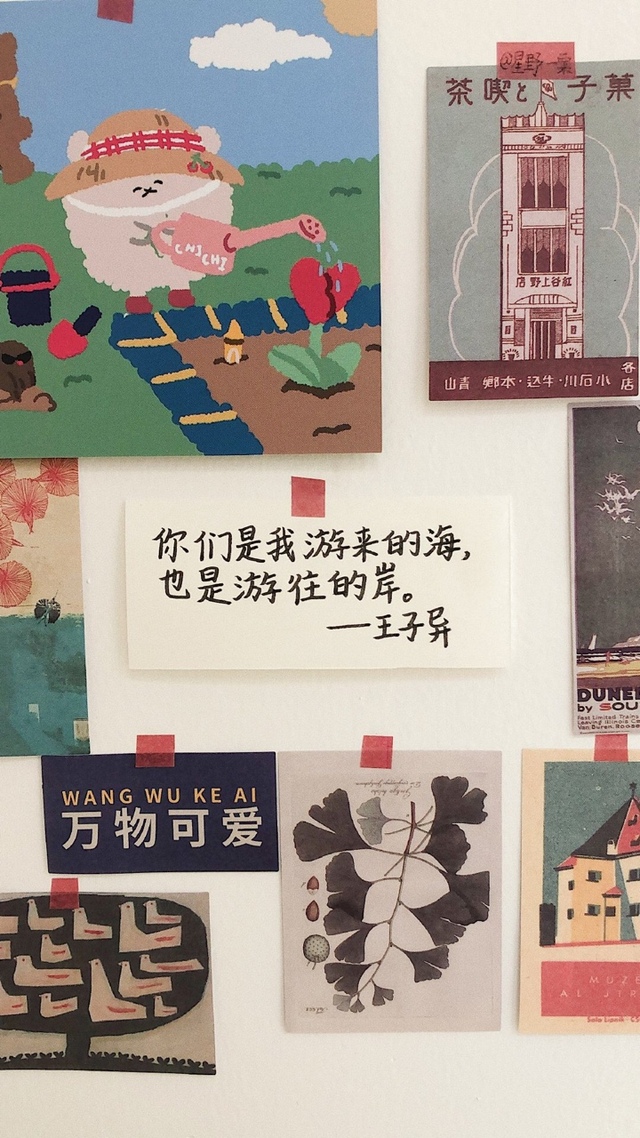 菓子と喫茶
紅谷上野店
各店
小石川・牛込・本郷 青山
CHICHI
你们是我游来的海,
也是游往的岸。
——王子异
DUNE
by SOU
Fast Limited Trains
Leaving Illinois Ce
Van Buren, Roose
WANG WU KE AI
万物可爱
MUZE